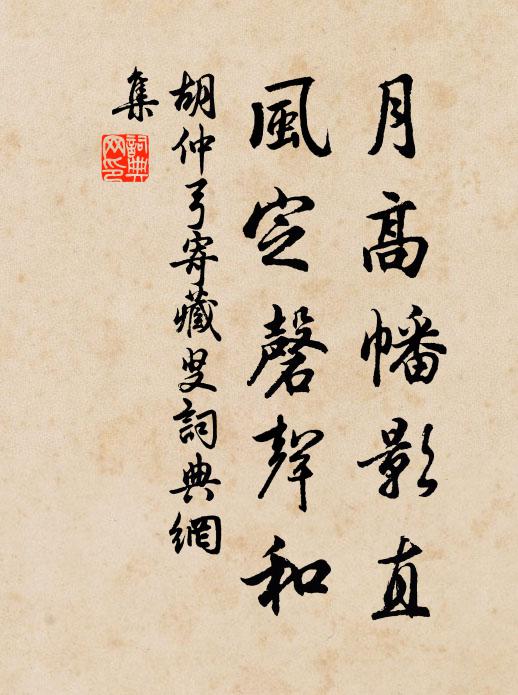 月高幡影直
風定磬聲和
胡仲弓寄藏叟詞典網
集
詞典
网印